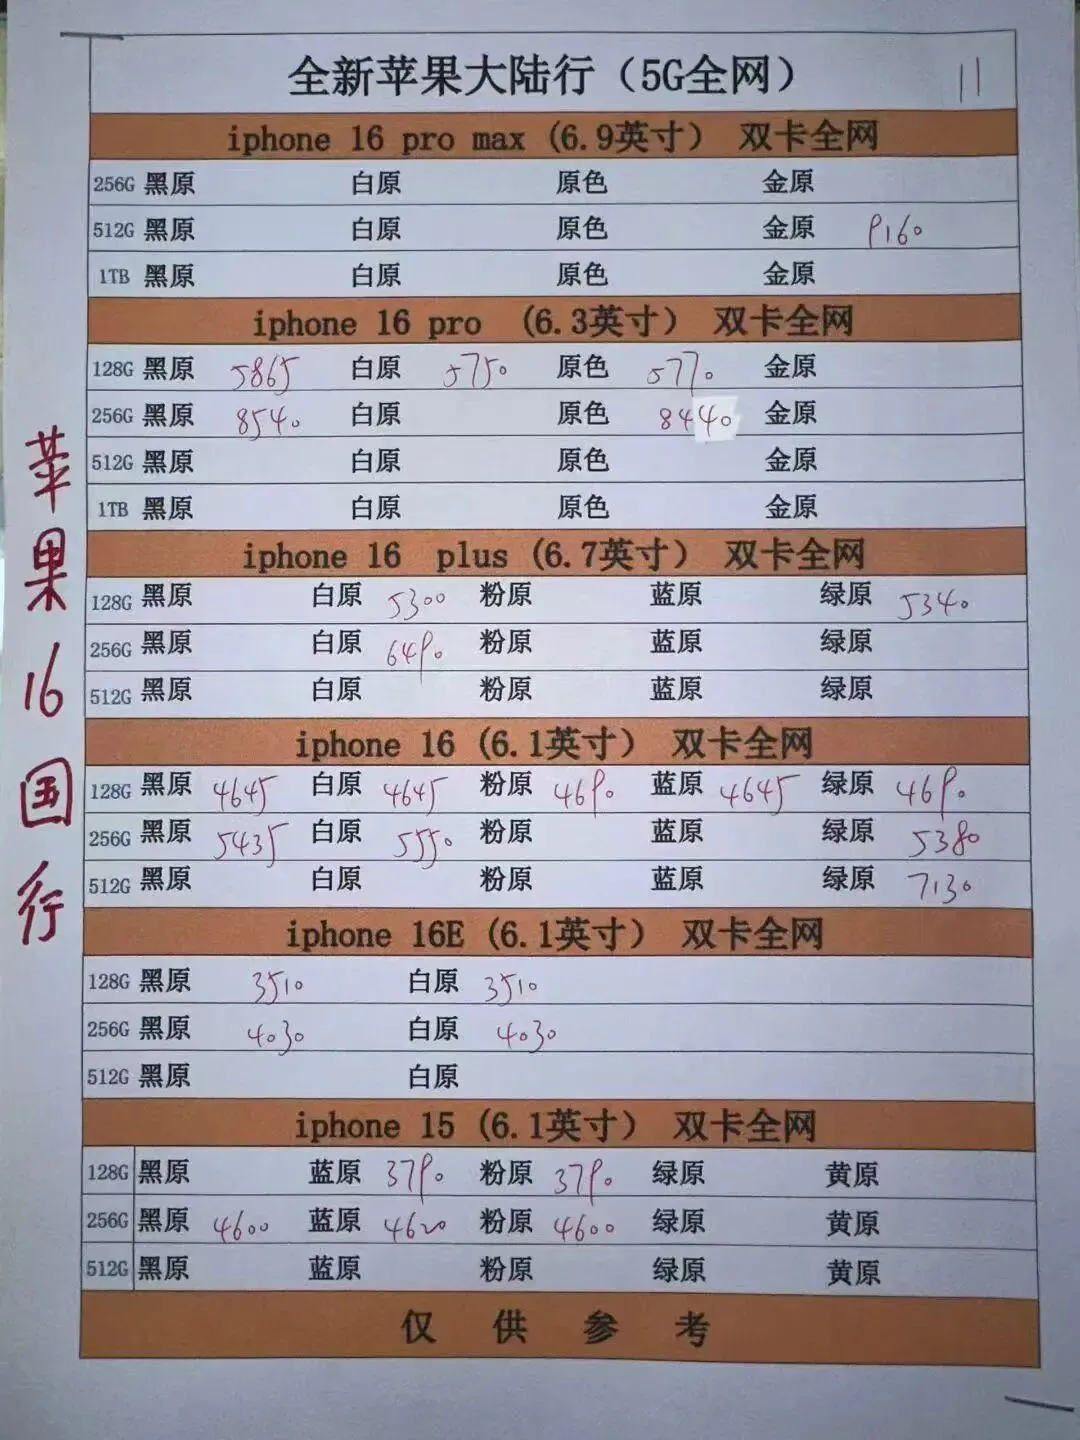 全新苹果大陆行（5G全网） 11
iphone 16 pro max (6.9英寸） 双卡全网
256G 黑原 白原 原色 金原
512G 黑原 白原 原色 金原 9160
1TB 黑原 白原 原色 金原
iphone 16 pro (6.3英寸） 双卡全网
128G 黑原 5865 白原 5750 原色 5770 金原
256G 黑原 8540 白原 原色 8440 金原
512G 黑原 白原 原色 金原
1TB 黑原 白原 原色 金原
iphone 16 plus (6.7英寸） 双卡全网
128G 黑原 白原 5300 粉原 蓝原 绿原 5340
256G 黑原 白原 6490 粉原 蓝原 绿原
512G 黑原 白原 粉原 蓝原 绿原
iphone 16 (6.1英寸） 双卡全网
128G 黑原 4645 白原 4645 粉原 4690 蓝原 4645 绿原 4690
256G 黑原 5435 白原 5550 粉原 蓝原 绿原 5380
512G 黑原 白原 粉原 蓝原 绿原 7130
iphone 16E (6.1英寸） 双卡全网
128G 黑原 3510 白原 3510
256G 黑原 4030 白原 4030
512G 黑原 白原
iphone 15 (6.1英寸） 双卡全网
128G 黑原 蓝原 3790 粉原 3790 绿原 黄原
256G 黑原 4600 蓝原 4620 粉原 4600 绿原 黄原
512G 黑原 蓝原 粉原 绿原 黄原
仅供参考
苹果16国行